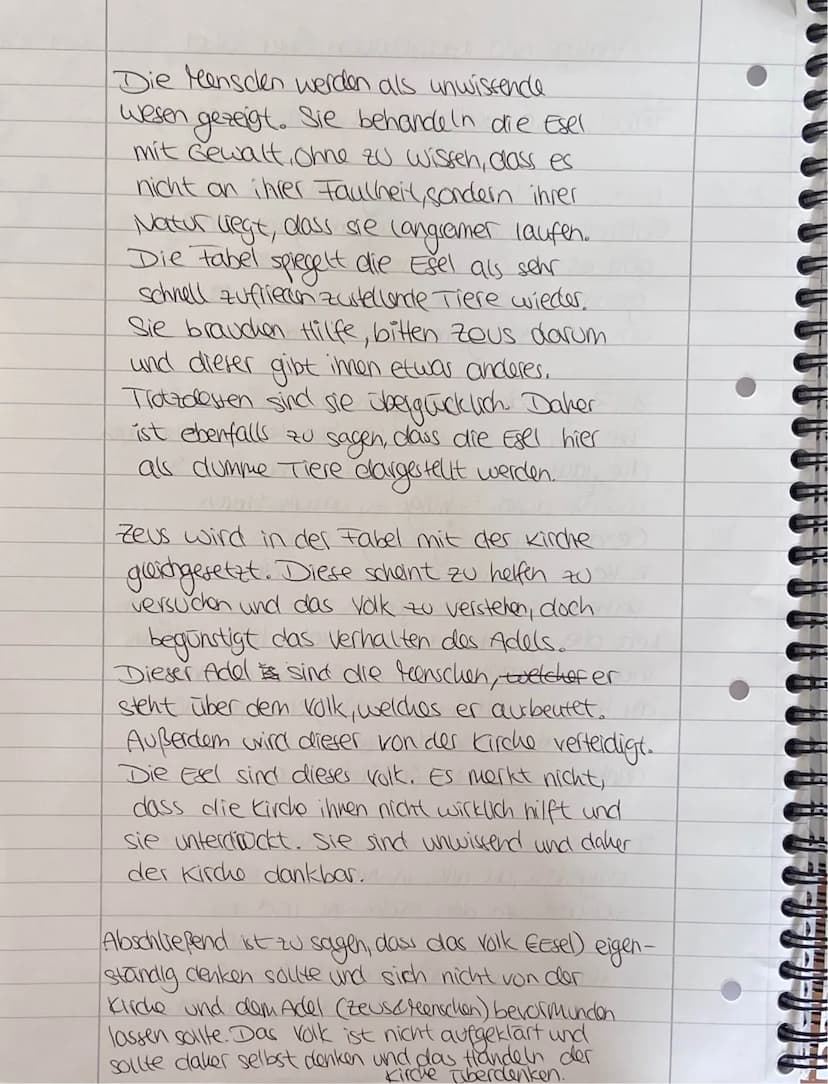 Die Menschen werden als unwissende
Wesen gezeigt. Sie behandeln die Esel
mit Gewalt, ohne zu wissen, dass es
nicht an ihrer Faulheit, sondern ihrer
Natur liegt, dass sie langsamer laufen.
Die Fabel spiegelt die Esel als sehr
schnell zufrieden zustellende Tiere wieder.
Sie brauchen Hilfe, bitten Zeus darum
und dieser gibt ihnen etwas anderes.
Trotzdessen sind sie überglücklich. Daher
ist ebenfalls zu sagen, dass die Esel hier
als dumme Tiere dargestellt werden.
Zeus wird in der Fabel mit der Kirche
gleichgesetzt. Diese scheint zu helfen zu
versuchen und das Volk zu verstehen, doch
begünstigt das Verhalten des Adels.
Dieser Adel sind die Menschen, welcher er
steht über dem Volk, welches er ausbeutet.
Außerdem wird dieser von der Kirche verteidigt.
Die Esel sind dieses Volk. Es merkt nicht,
dass die Kirche ihnen nicht wirklich hilft und
sie unterdrückt. Sie sind unwissend und daher
der Kirche dankbar.
Abschließend ist zu sagen, dass das Volk (Esel) eigen-
ständig denken sollte und sich nicht von der
Kirche und dem Adel (Zeus&Menschen) bevormunden
lassen sollte. Das Volk ist nicht aufgeklärt und
sollte daher selbst denken und das Handeln der
Kirche überdenken.